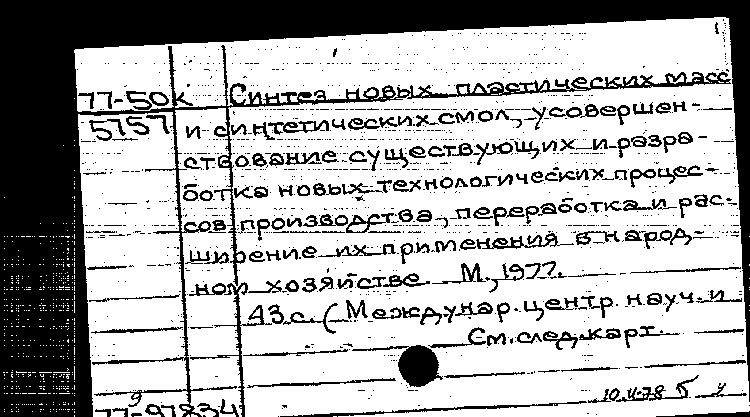 77-50к Синтез новых пластических масс
5757 и синтетических смол, усовершен-
ствование существующих и разра-
ботка новых технологических процес-
сов производства, переработка и рас-
ширение их применения в народ-
ном хозяйстве. М., 1977.
43с. (Междунар. центр науч. и
См. след. карт.
77-97834